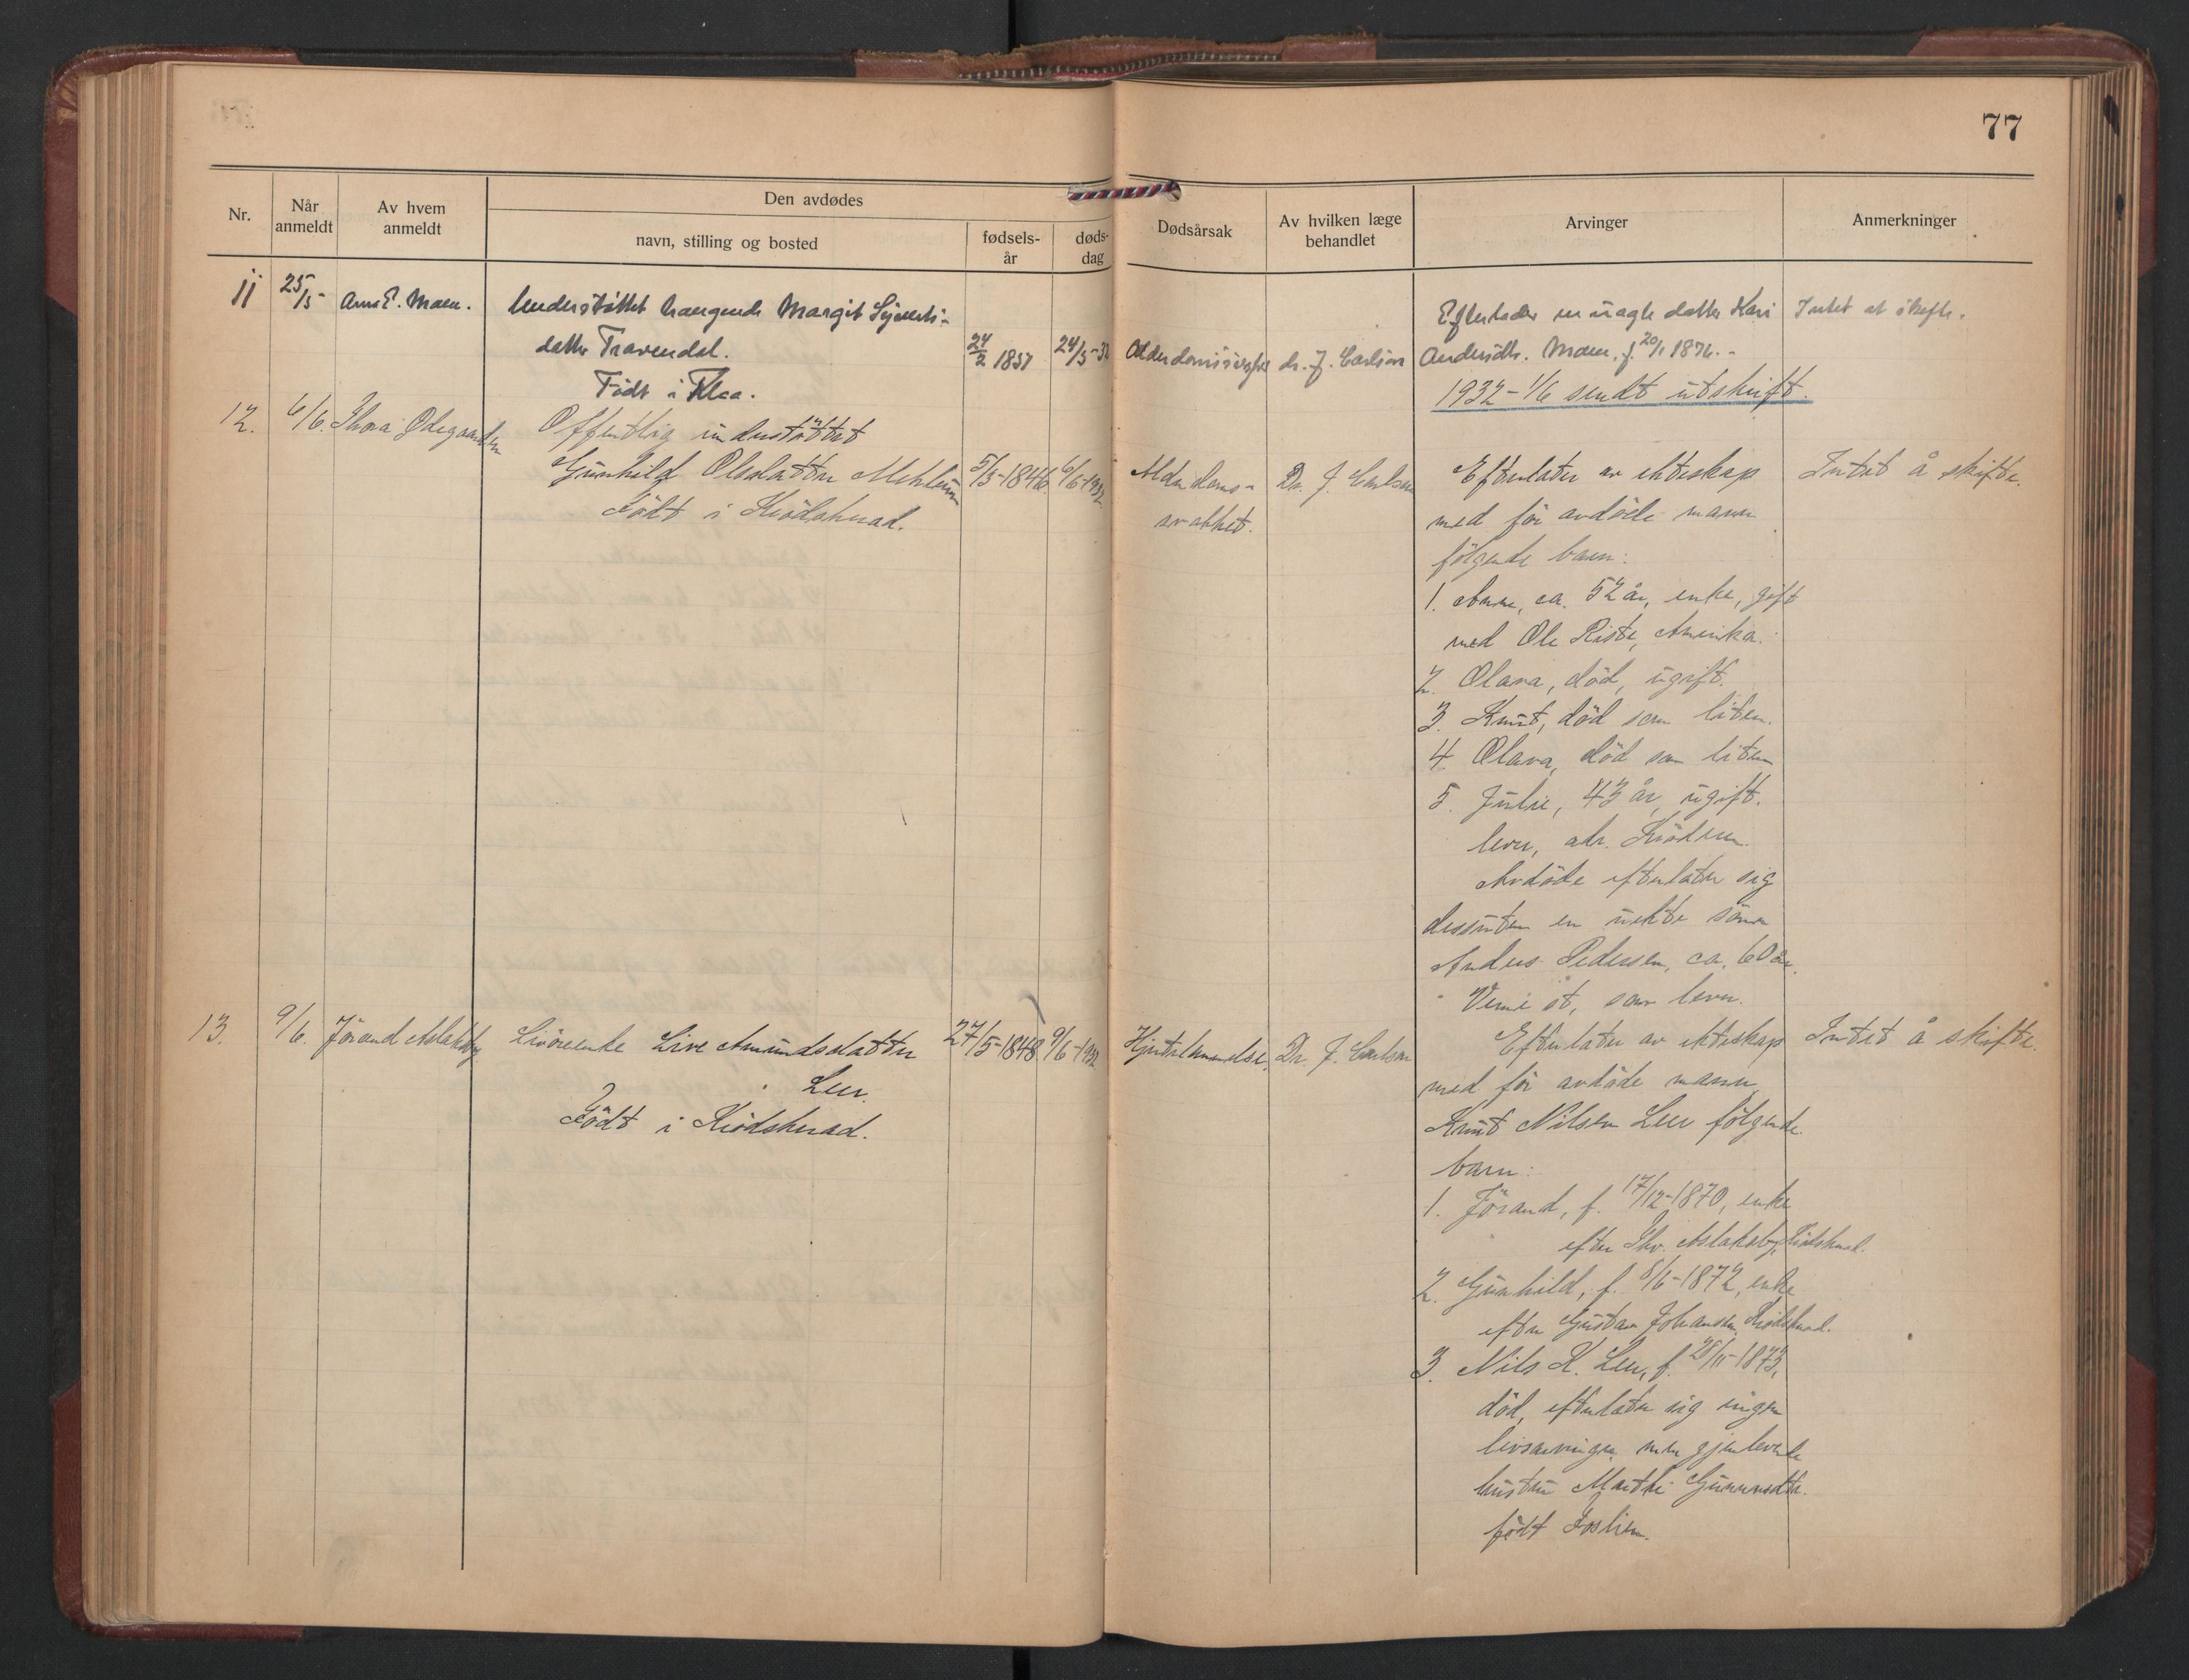 77
Nr.
Når anmeldt
Av hvem anmeldt
Den avdødes
navn, stilling og bosted
fødsels- år
døds- dag
Dødsårsak
Av hvilken læge behandlet
Arvinger
Anmerkninger
11 25/5 Arne E. Moen. Understöttet trængende Margit Syverts-
datter Travendal. 24/2 1851 24/5-32 Alderdomssvaghet dr. J. Carlson
Född i Flaa.
Efterlader en uægte datter Kari
Andersdtr. Moen, f. 20/1 1876.-
1932-1/6 sendt utskrift.
Intet at skifte.
12. 6/6. Thora Ødegaarden Offentlig understöttet
Gunhild Olsdatter Mehlum 5/5-1846 6/6-1932
Född i Krödsherad.
Alderdoms-
svakhet.
Dr. J. Carlson
Efterlater av ekteskap
med før avdöde mann
følgende barn:
1. Anne, ca. 52 år, enke, gift
med Ole Riste, Amerika.
2. Olava, död, ugift.
3. Knut, död som liten.
4. Olava, död som liten
5. Julie, 43 år, ugift.
lever, adr. Krödren.
Avdöde efterlater sig
dessuten en uekte sönn
Anders Pedersen, ca. 60 år.
som lever.
Intet å skifte.
13. 9/6. Jörand Aslaksby Livöreenke Live Amundsdatter 27/5-1848 9/6-1932
Leer.
Född i Krödsherad.
Hjertelammelse. Dr. J. Carlson
Efterlater av ekteskap
med før avdöde mann
Knut Nilsen Leer følgende
barn:
1. Jörand, f. 17/12-1870, enke
efter Thv. Aslaksby, Krödsherad.
2. Gunhild, f. 8/6-1872, enke
efter Gustav Johansen, Krödsherad.
3. Nils K. Leer, f. 28/11-1873,
död, efterlater sig ingen
livsarvinger, men gjenlevende
hustru Marthe Gunnersdtr.
född
Intet å skifte.